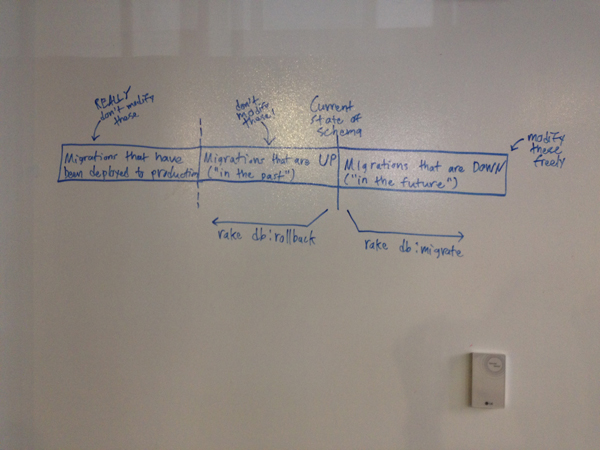 REALLY
don't modify
these
don't
modify
these!
Current
state of
schema
modify
these
freely
Migrations that have
been deployed to production
Migrations that are UP
("in the past")
Migrations that are DOWN
("in the future")
rake db:rollback
rake db:migrate